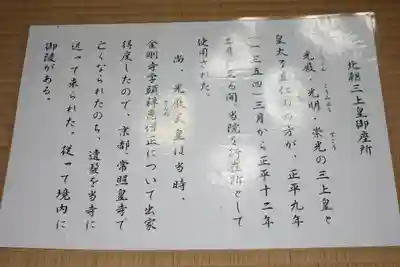 北朝三上皇御座所
光厳・光明・崇光の三上皇と
皇太子直仁の方が、正平九年
(一三五四)三月から正平十二年
二月の間、当院を行在所として
使用された。
尚、光厳上皇は当時、
金剛寺学頭禅恵僧正について出家
得度したので、京都・常照皇寺で
亡くなられたのち、遺髪を当寺に
送って来られた。従って境内に
御陵がある。